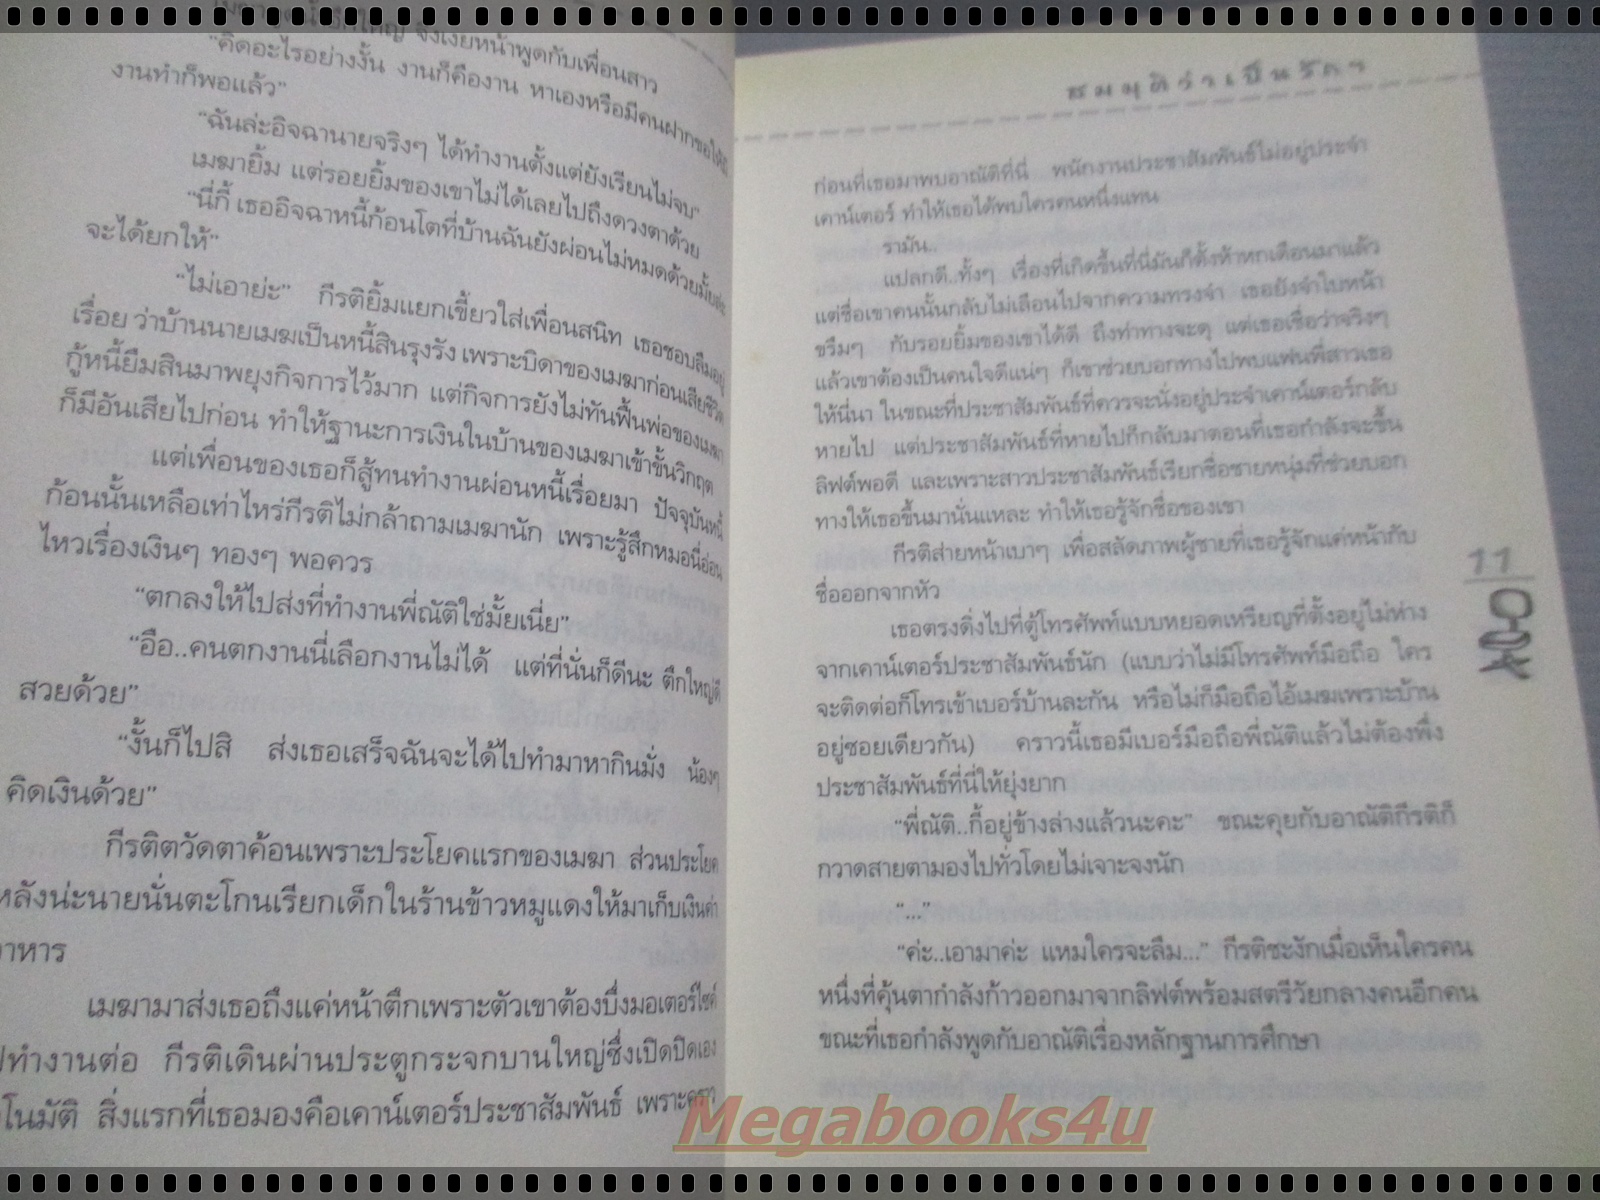 จึงเงยหน้าพูดกับเพื่อนสาว
“คิดอะไรอย่างงั้น งานก็คืองาน หาเองหรือมีคนฝากขอให้มี
งานทำก็พอแล้ว”
“ฉันล่ะอิจฉานายจริงๆ ได้ทำงานตั้งแต่ยังเรียนไม่จบ”
เมฆายิ้ม แต่รอยยิ้มของเขาไม่ได้เลยไปถึงดวงตาด้วย
“นี่กี้ เธออิจฉาหนี้ก้อนโตที่บ้านฉันยังผ่อนไม่หมดด้วยมั้ยล่ะ
จะได้ยกให้”
“ไม่เอาย่ะ” กีรติยิ้มแยกเขี้ยวใส่เพื่อนสนิท เธอชอบลืมอยู่
เรื่อย ว่าบ้านนายเมฆเป็นหนี้สินรุงรัง เพราะบิดาของเมฆาก่อนเสียชีวิต
กู้หนี้ยืมสินมาพยุงกิจการไว้มาก แต่กิจการยังไม่ทันฟื้นพ่อของเมฆา
ก็มีอันเสียไปก่อน ทำให้ฐานะการเงินในบ้านของเมฆาเข้าขั้นวิกฤต
แต่เพื่อนของเธอก็สู้ทนทำงานผ่อนหนี้เรื่อยมา ปัจจุบันหนี้
ก้อนนั้นเหลือเท่าไหร่กีรติไม่กล้าถามเมฆานัก เพราะรู้สึกหมอนี่อ่อน
ไหวเรื่องเงินๆ ทองๆ พอควร
“ตกลงให้ไปส่งที่ทำงานพี่ณัติใช่มั้ยเนี่ย”
“อือ..คนตกงานนี่เลือกงานไม่ได้ แต่ที่นั่นก็ดีนะ ตึกใหญ่ดี
สวยด้วย”
“งั้นก็ไปสิ ส่งเธอเสร็จฉันจะได้ไปทำมาหากินมั่ง น้องๆ
คิดเงินด้วย”
กีรติตวัดตาค้อนเพราะประโยคแรกของเมฆา ส่วนประโยค
หลังน่ะนายนั่นตะโกนเรียกเด็กในร้านข้าวหมูแดงให้มาเก็บเงินค่า
อาหาร
เมฆามาส่งเธอถึงแค่หน้าตึกเพราะตัวเขาต้องบึ่งมอเตอร์ไซค์
ไปทำงานต่อ กีรติเดินผ่านประตูกระจกบานใหญ่ซึ่งเปิดปิดเอง
อัตโนมัติ สิ่งแรกที่เธอมองคือเคาน์เตอร์ประชาสัมพันธ์ เพราะคราว
สมมุติว่าเป็นรักๆ
ก่อนที่เธอมาพบอาณัติที่นี่ พนักงานประชาสัมพันธ์ไม่อยู่ประจำ
เคาน์เตอร์ ทำให้เธอได้พบใครคนหนึ่งแทน
รามัน..
แปลกดี..ทั้งๆ เรื่องที่เกิดขึ้นที่นี่มันก็ตั้งห้าหกเดือนมาแล้ว
แต่ชื่อเขาคนนั้นกลับไม่เลือนไปจากความทรงจำ เธอยังจำใบหน้า
ขรึมๆ กับรอยยิ้มของเขาได้ดี ถึงท่าทางจะดุ แต่เธอเชื่อว่าจริงๆ
แล้วเขาต้องเป็นคนใจดีแน่ๆ ก็เขาช่วยบอกทางไปพบแฟนพี่สาวเธอ
ให้นี่นา ในขณะที่ประชาสัมพันธ์ที่ควรจะนั่งอยู่ประจำเคาน์เตอร์กลับ
หายไป แต่ประชาสัมพันธ์ที่หายไปก็กลับมาตอนที่เธอกำลังจะขึ้น
ลิฟต์พอดี และเพราะสาวประชาสัมพันธ์เรียกชื่อชายหนุ่มที่ช่วยบอก
ทางให้เธอขึ้นมานั่นแหละ ทำให้เธอรู้จักชื่อของเขา
กีรติส่ายหน้าเบาๆ เพื่อสลัดภาพผู้ชายที่เธอรู้จักแค่หน้ากับ
ชื่อออกจากหัว
เธอตรงดิ่งไปที่ตู้โทรศัพท์แบบหยอดเหรียญที่ตั้งอยู่ไม่ห่าง
จากเคาน์เตอร์ประชาสัมพันธ์นัก (แบบว่าไม่มีโทรศัพท์มือถือ ใคร
จะติดต่อก็โทรเข้าเบอร์บ้านละกัน หรือไม่ก็มือถือไอ้เมฆเพราะบ้าน
อยู่ซอยเดียวกัน) คราวนี้เธอมีเบอร์มือถือพี่ณัติแล้วไม่ต้องพึ่ง
ประชาสัมพันธ์ที่นี่ให้ยุ่งยาก
“พี่ณัติ..กี้อยู่ข้างล่างแล้วนะคะ” ขณะคุยกับอาณัติกีรติก็
กวาดสายตามองไปทั่วโดยไม่เจาะจงนัก
“...”
“ค่ะ..เอามาค่ะ แหมใครจะลืม...” กีรติชะงักเมื่อเห็นใครคน
หนึ่งที่คุ้นตากำลังก้าวออกมาจากลิฟต์พร้อมสตรีวัยกลางคนอีกคน
ขณะที่เธอกำลังพูดกับอาณัติเรื่องหลักฐานการศึกษา
11
Megabooks4u